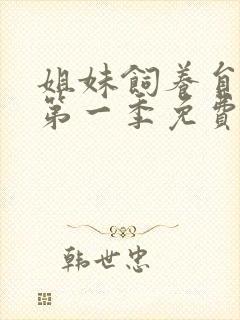 姐妹飼養
第一季免費
韩世忠